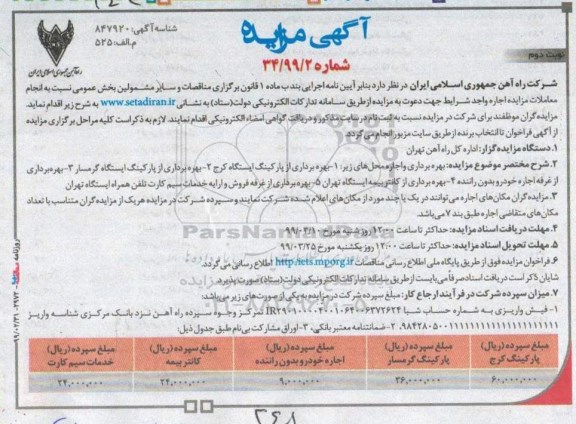 شناسه آگهی: ۸۴۷۹۲۰
م.الف: ۵۲۵
آگهی مزایده
شماره ۳۴/۹۹/۲
نوبت دوم
راه‌آهن جمهوری اسلامی ایران
شرکت راه آهن جمهوری اسلامی ایران در نظر دارد بنابر آیین نامه اجرایی بند ب ماده ۱ قانون برگزاری مناقصات و سایر مشمولین بخش عمومی نسبت به انجام
معاملات مزایده اجاره واجد شرایط جهت دعوت به مزایده از طریق سامانه تدارکات الکترونیکی دولت (ستاد) به نشانی www.setadiran.ir به شرح زیر اقدام نماید.
مزایده گران موظفند برای شرکت در مزایده نسبت به ثبت نام در سایت مذکور و دریافت گواهی امضاء الکترونیکی اقدام نمایند. لازم به ذکر است کلیه مراحل برگزاری مزایده
از آگهی فراخوان تا انتخاب برنده از طریق سایت مزبور انجام می گردد.
۱. دستگاه مزایده گزار: اداره کل راه آهن تهران
۲. شرح مختصر موضوع مزایده: بهره برداری و اجاره محل های زیر: ۱-بهره برداری از پارکینگ ایستگاه کرج ۲-بهره برداری از پارکینگ ایستگاه گرمسار ۳-بهره برداری
از غرفه اجاره خودرو بدون راننده ۴-بهره برداری از کانتر بیمه ایستگاه تهران ۵-بهره برداری از غرفه فروش و ارایه خدمات سیم کارت تلفن همراه ایستگاه تهران
۳. مزایده گران مکان های اجاره می توانند در یک یا چند مورد از مکان های اعلام شده شرکت نمایند و سپرده شرکت در مزایده هر یک از مزایده گران متناسب با تعداد
مکان های متقاضی اجاره طبق بند ۷ می باشد.
۴. مهلت دریافت اسناد مزایده: حداکثر تا ساعت ۱۲:۰۰ روز شنبه مورخ ۹۹/۰۳/۱۰
۵. مهلت تحویل اسناد مزایده: حداکثر تا ساعت ۱۲:۰۰ روز یکشنبه مورخ ۹۹/۰۳/۲۵
۶. فراخوان مزایده فوق از طریق پایگاه ملی اطلاع رسانی مناقصات http://iets.mporg.ir اطلاع رسانی می گردد.
شایان ذکر است دریافت اسناد صرفاً می بایست از طریق سامانه تدارکات الکترونیکی دولت (ستاد) صورت پذیرد.
۷. میزان سپرده شرکت در فرآیند ارجاع کار: مبلغ سپرده شرکت در مزایده به یکی از صورت های زیر می باشد:
۱- فیش واریزی به شماره حساب شبا
تمرکز وجوه سپرده راه آهن نزد بانک مرکزی شناسه واریز
۲. ضمانتنامه معتبر بانکی، ۳- اوراق مشارکت بی نام طبق جدول ذیل:
مبلغ سپرده (ریال) پارکینگ کرج | مبلغ سپرده (ریال) پارکینگ گرمسار | مبلغ سپرده (ریال) اجاره خودرو بدون راننده | مبلغ سپرده (ریال) کانتر بیمه | مبلغ سپرده (ریال) خدمات سیم کارت
۶۰,۰۰۰,۰۰۰ | ۳۶,۰۰۰,۰۰۰ | ۹,۰۰۰,۰۰۰ | ۲۴,۰۰۰,۰۰۰ | ۲۴,۰۰۰,۰۰۰
ParsNamadData